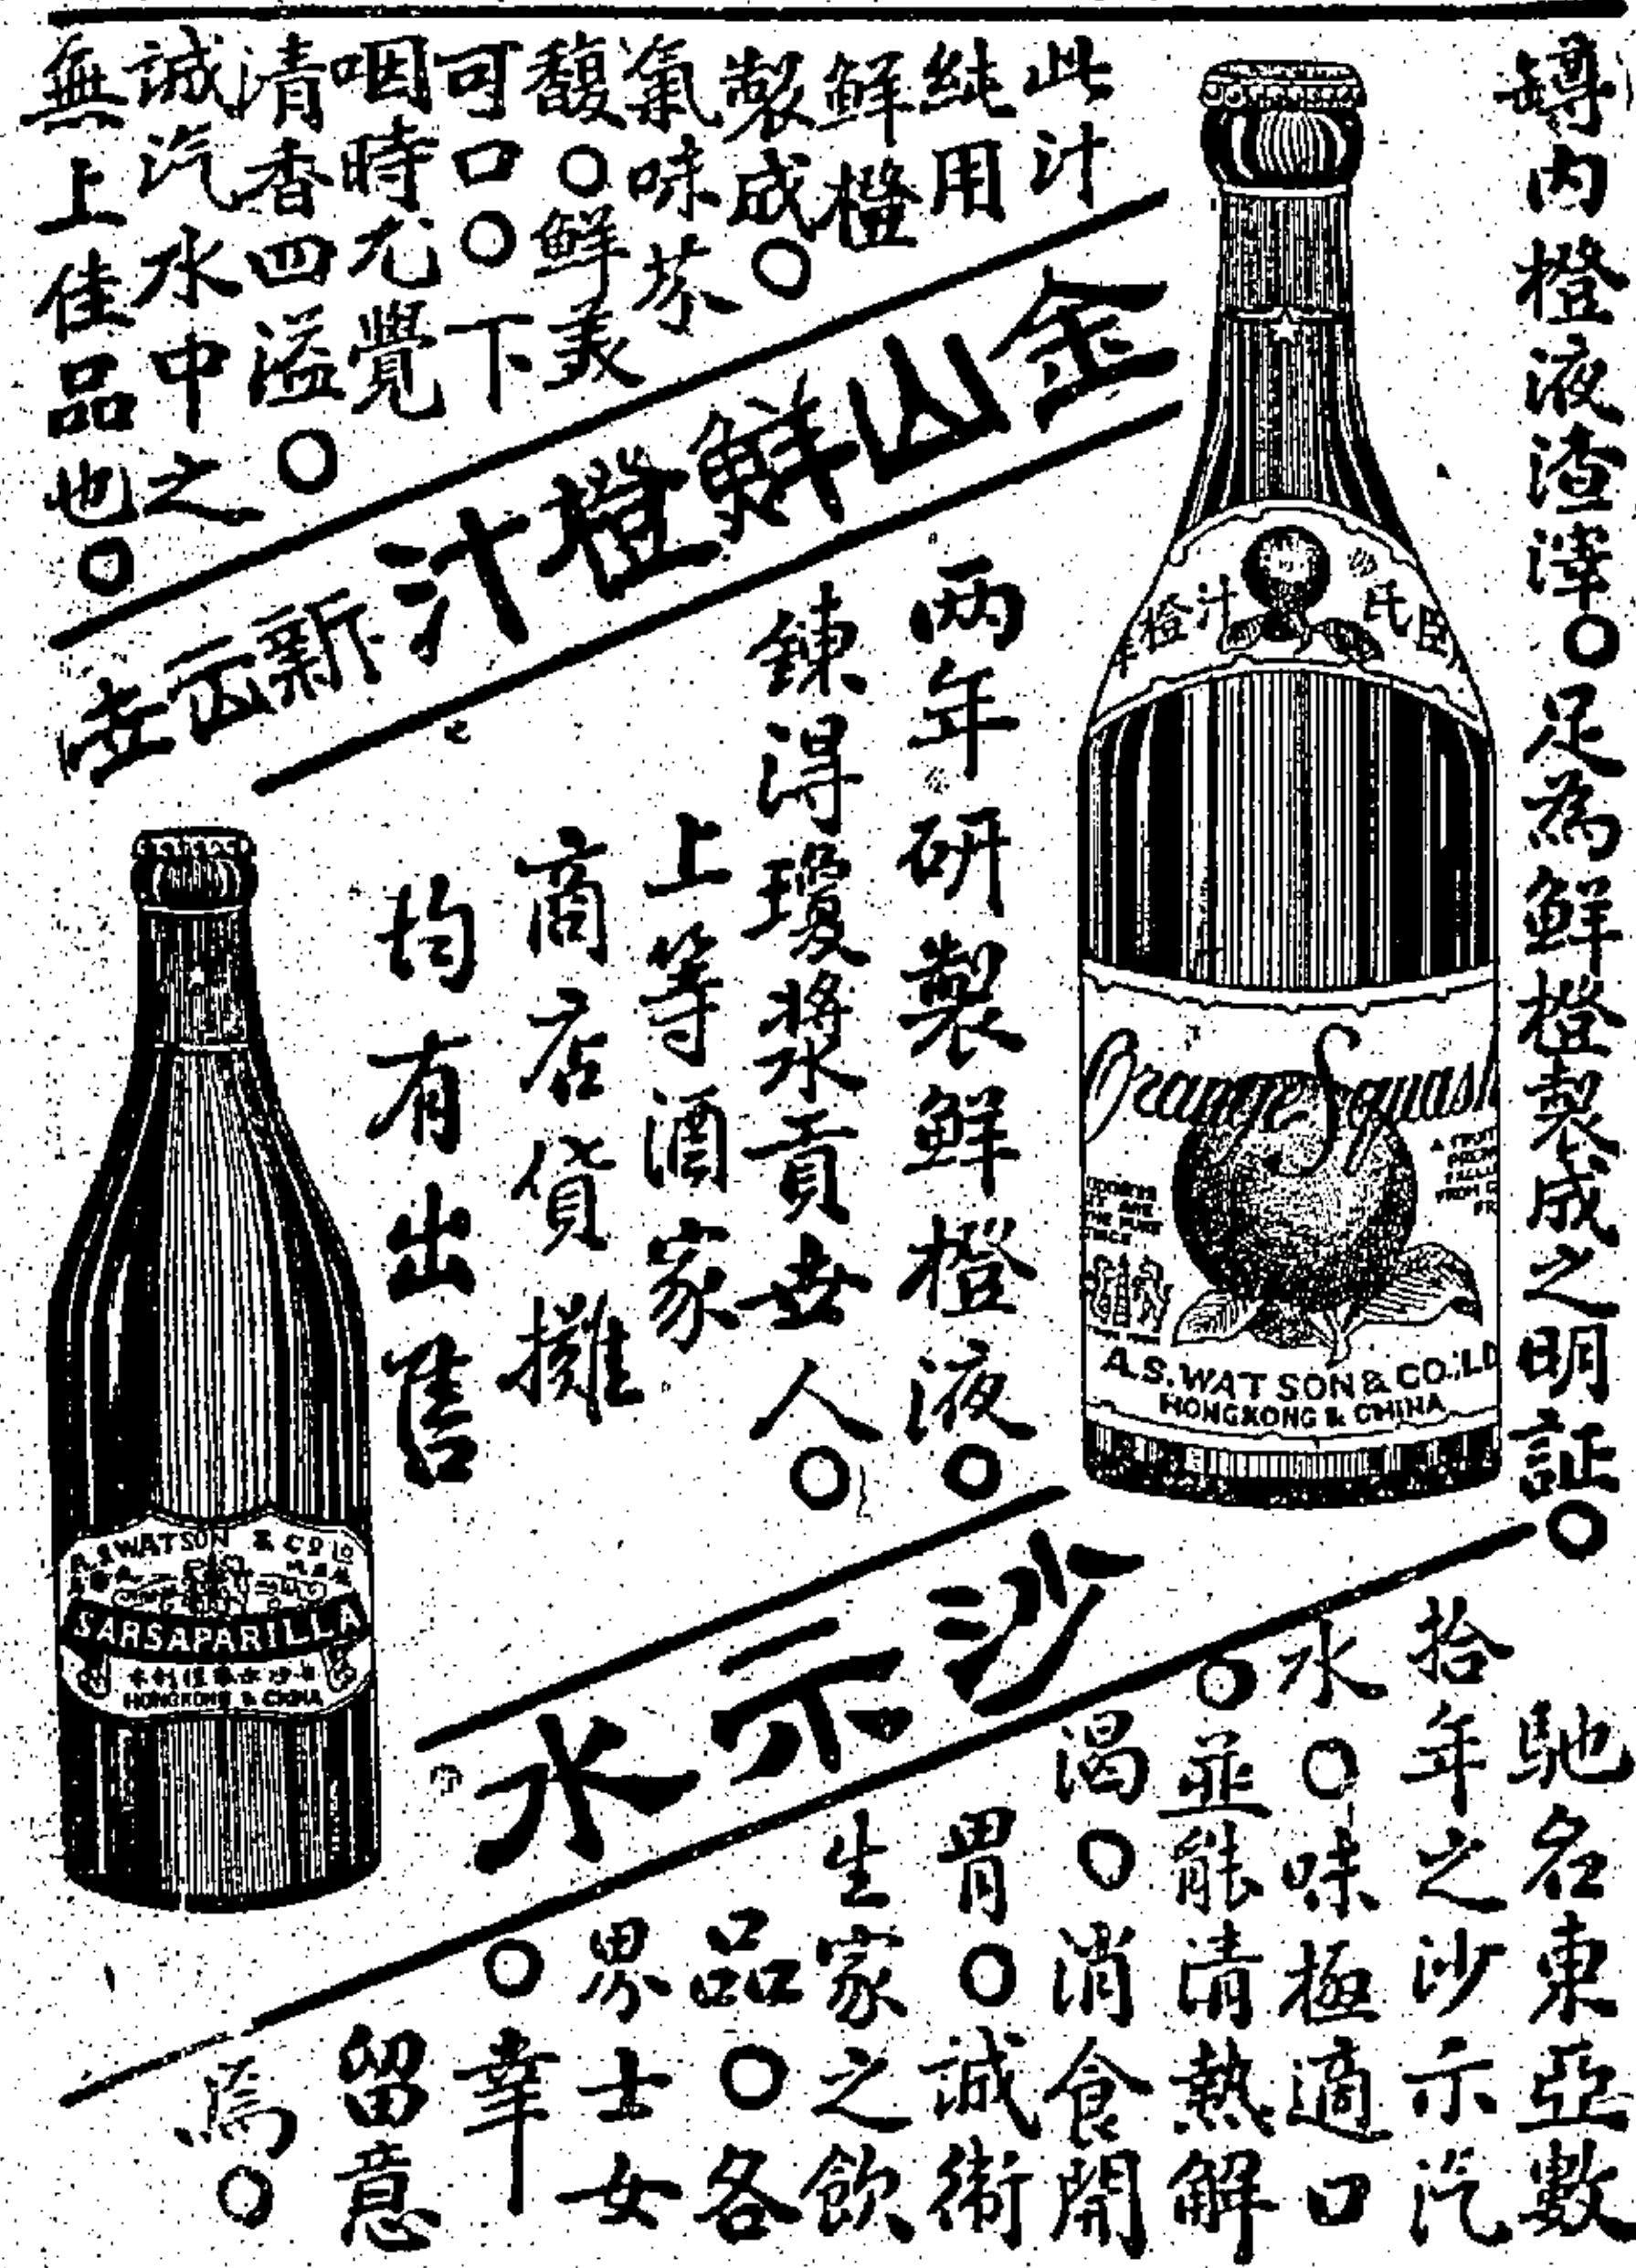 罇内橙液渣滓○足為鮮橙製成之明証○
此汁
純用
鮮橙
製成○
氣味芬
馥○鮮美
可口○下
咽時尤覺
清香四溢○
誠汽水中之
無上佳品也○
金山鮮橙汁新正立
两年研製鮮橙液○
鍊得瓊漿貢世人○
上等酒家
商店貨攤
均有出售
橙汁
氏臣
Orange Squash
A.S. WATSON & CO., LD
HONGKONG & CHINA
A.S. WATSON & CO LD
SARSAPARILLA
HONGKONG & CHINA
沙示水
馳名東亞數
拾年之沙示汽
水○味極適口
○並能清熱解
渴○消食開
胃○誠衛
生家之飲
品○各
界士女
○幸
留意
焉○